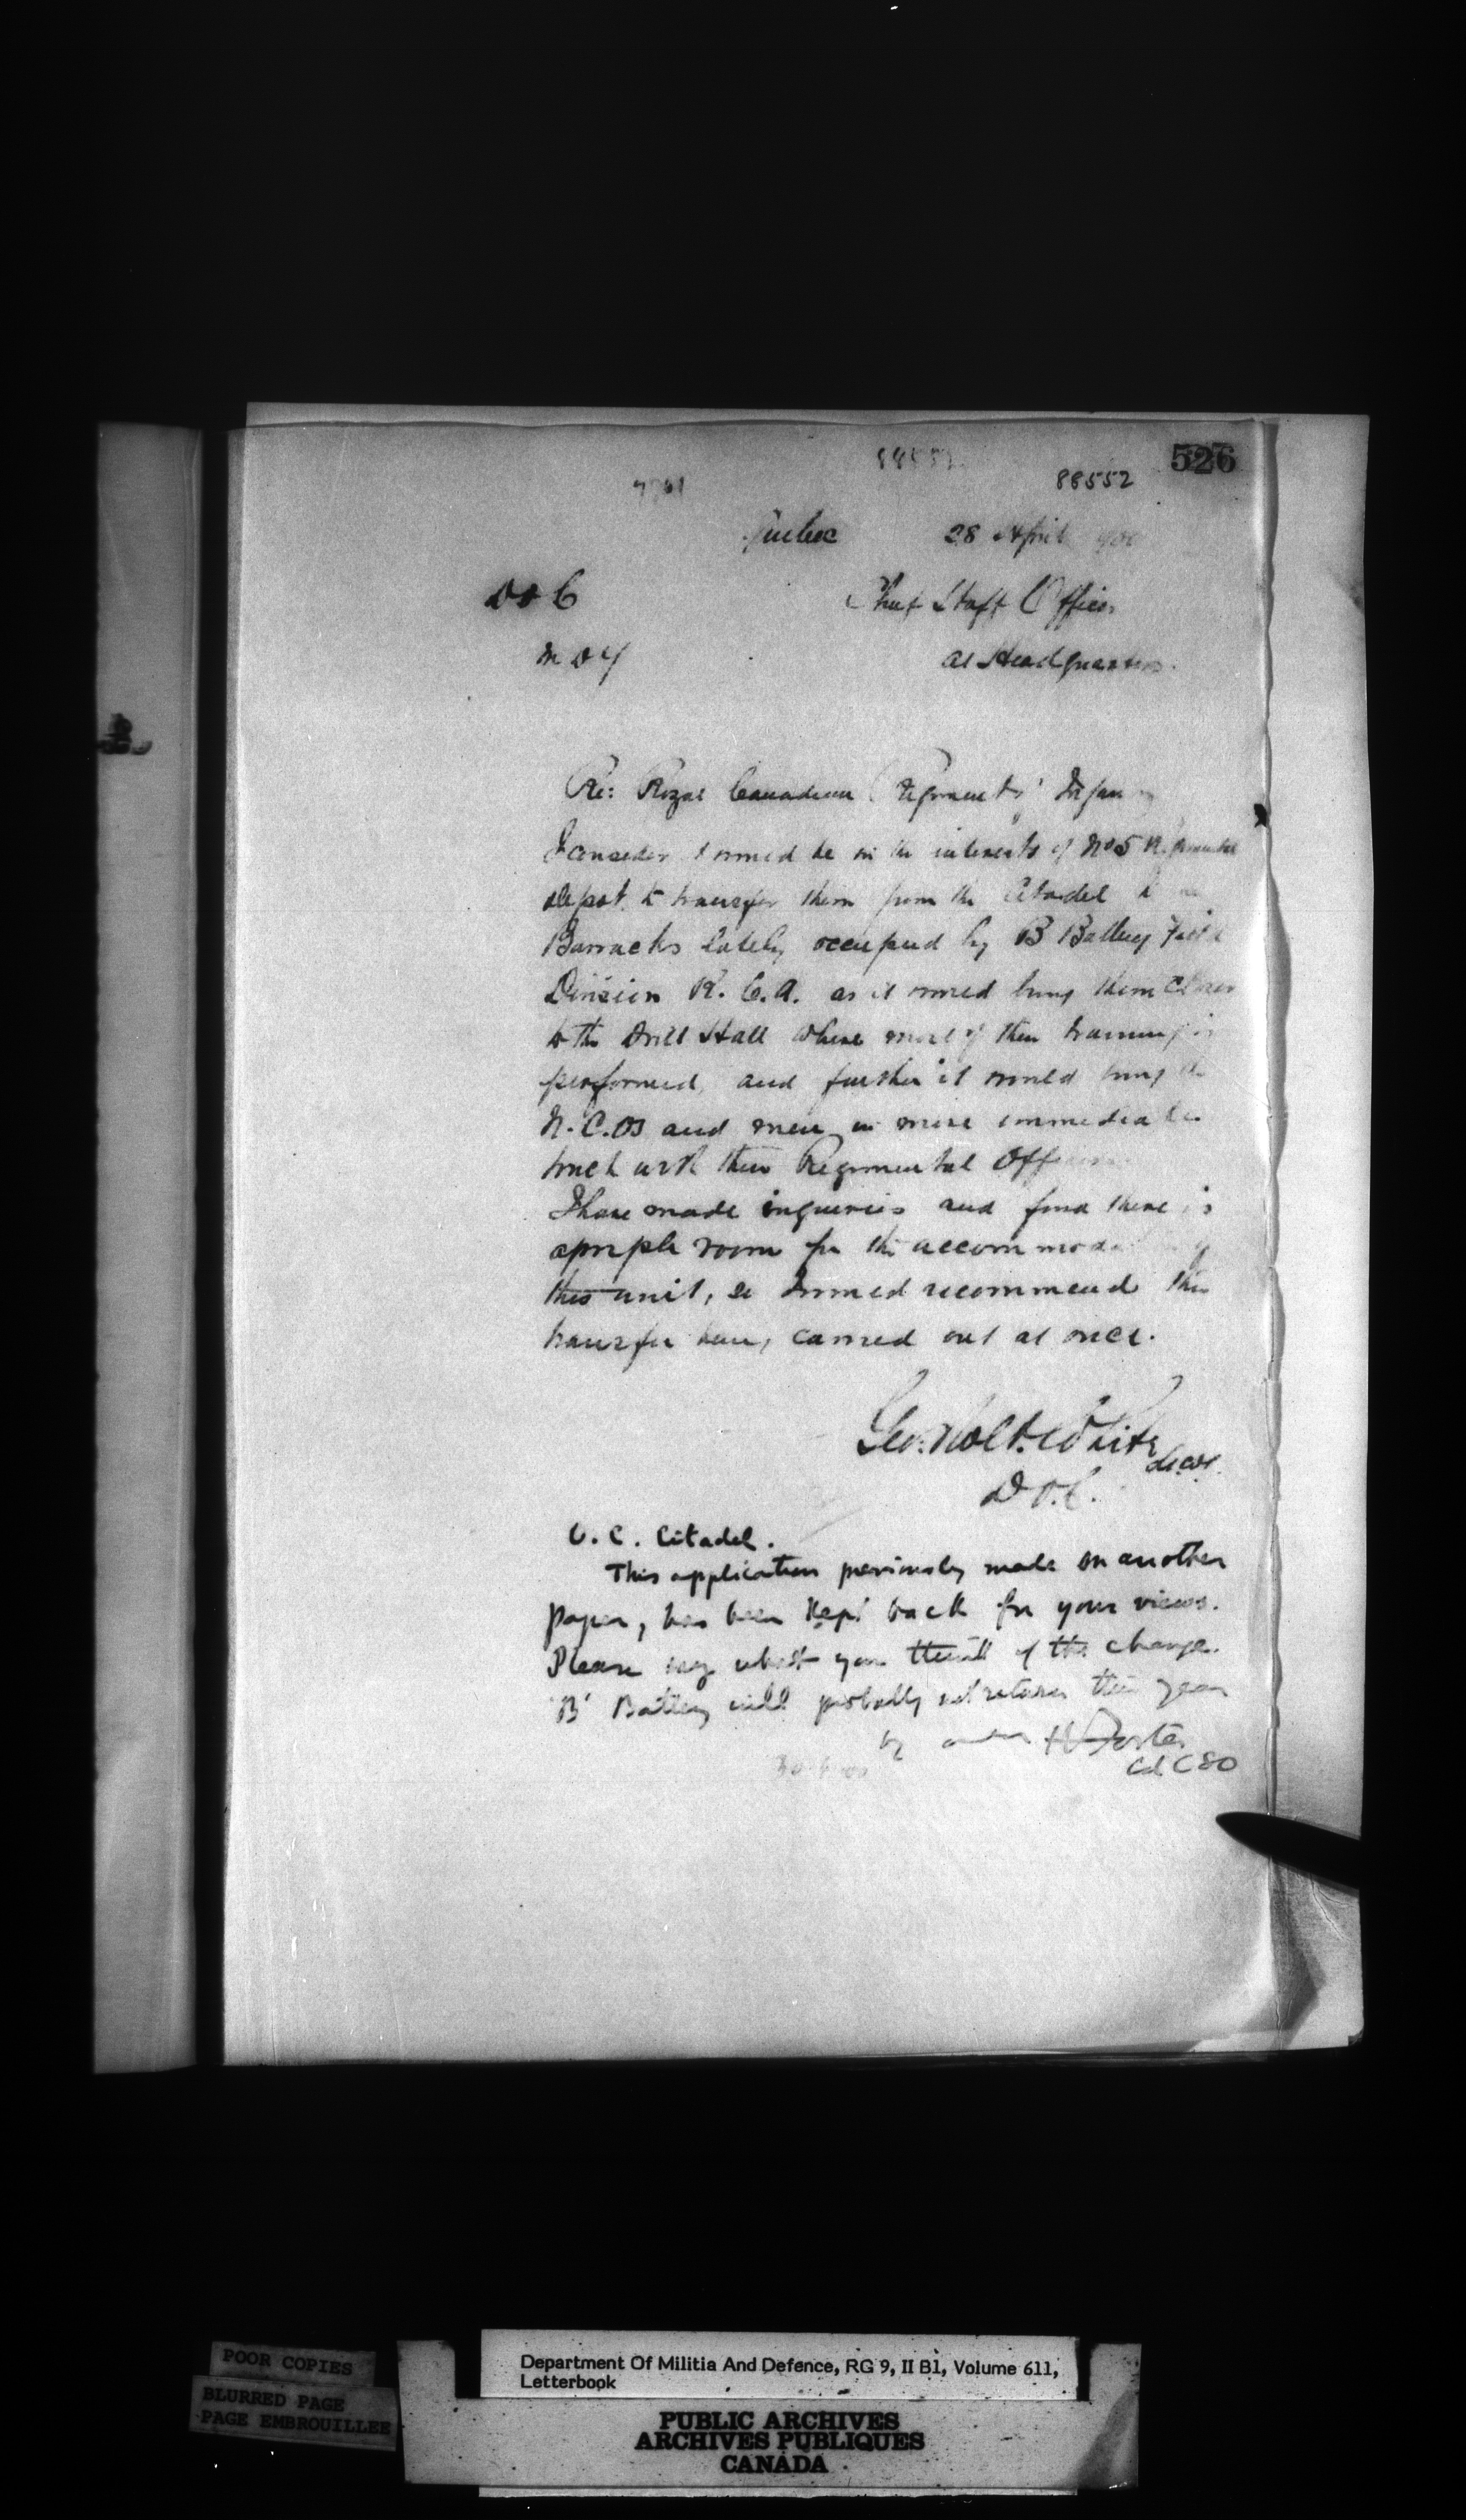 526
88552
Quebec 28 April
D O C Chief Staff Officer
M D 7 at Headquarters.
Re: Royal Canadian Regiment
I consider it would be in the interests of No 5 Regimental
depot to transfer them from the Citadel
Barracks lately occupied by B Battery Field
Division R. C. A. as it would bring them closer
to the Drill Hall where most of their training is
performed, and further it would bring the
N.C.Os and men in more immediate
touch with their Regimental Officers
I have made inquiries and find there is
ample room for the
this unit, & would recommend this
transfer being carried out at once.
Geo. Holt White
D.O.C.
O. C. Citadel.
This application previously made on another
paper, has been kept back for your views.
Please say what you think of the change.
'B' Battery will probably not return this year
by order H Foster
Col. C S O
POOR COPIES
BLURRED PAGE
PAGE EMBROUILLEE
Department Of Militia And Defence, RG 9, II B1, Volume 611,
Letterbook
PUBLIC ARCHIVES
ARCHIVES PUBLIQUES
CANADA